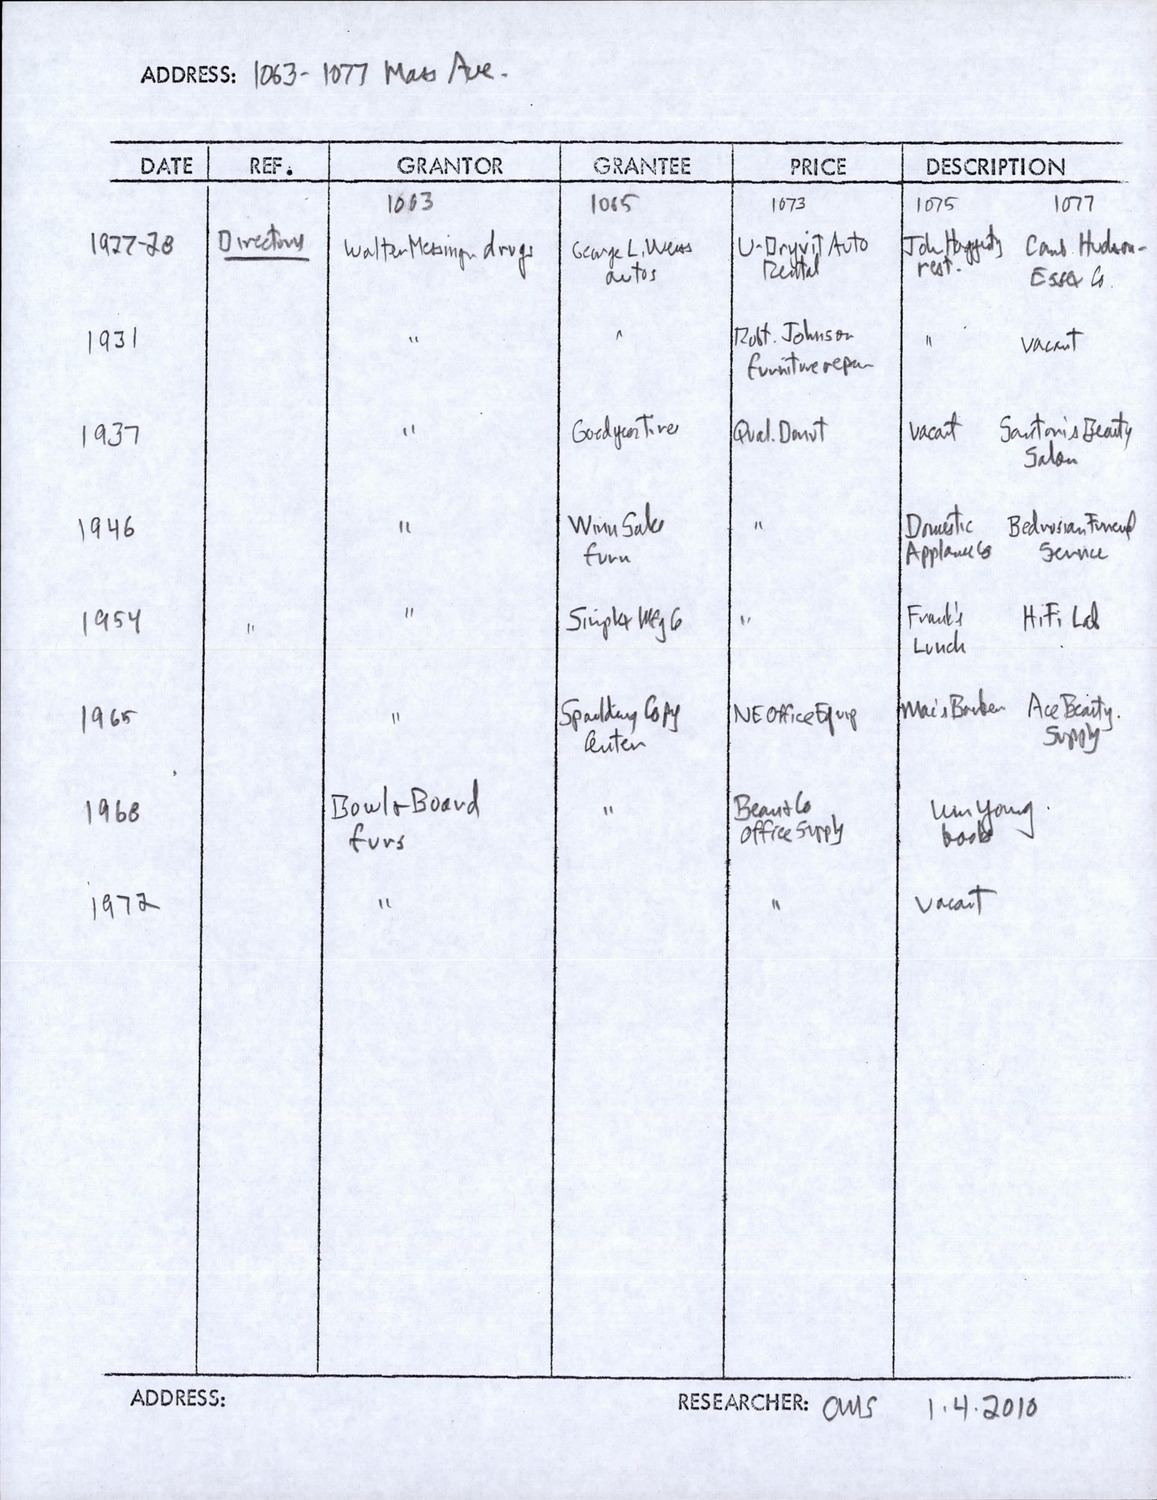 ADDRESS: 1063-1077 Mass Ave.
DATE REF. GRANTOR GRANTEE PRICE DESCRIPTION
1063 1065 1073 1075 1077
1927-28 Directory Walter Messinger drugs George L. Weiss U-Dryvit Auto John Haggerty Camb. Hudson-
autos Rental rest. Essex Co.
1931 " " Robt. Johnson " vacant
furniture repair
1937 " Goodyear Tires Qual. Donut vacant Santoni's Beauty
Salon
1946 " Winn Sales " Domestic Bedrosian Funeral
furn Appliance Co Service
1954 " " Simplex Mfg Co " Frank's HiFi Lab
Lunch
1965 " Spaulding Copy NE Office Equip Mac's Barber Ace Beauty
Center Supply
1968 Bowl & Board " Beaur Co Wm Young
furs Office Supply books
1972 " " vacant
ADDRESS: RESEARCHER: CMS 1.4.2010